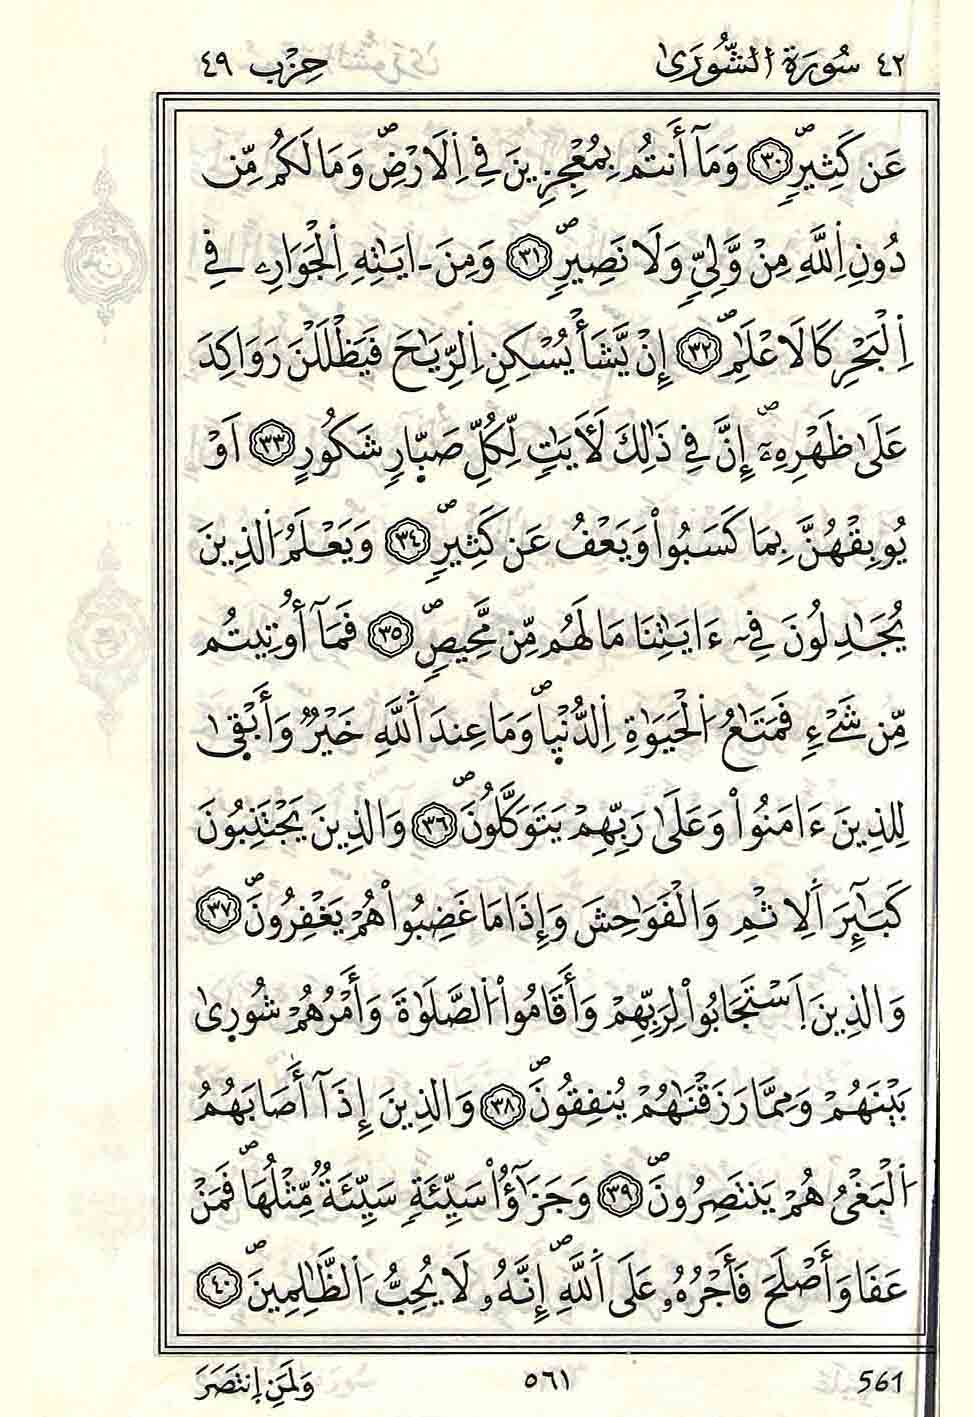 ٤٢ سُورَةُ الشُّورَىٰ حِزْب ٤٩
عَن كَثِيرٍۖ ٣٠ وَمَآ أَنتُم بِمُعْجِزِينَ فِي اِلَارْضِۖ وَمَا لَكُم مِّن
دُونِ اِللَّهِ مِنْ وَّلِيٍّ وَلَا نَصِيرٍۖ ٣١ وَمِنَ ـايَٰتِهِ اِلْجَوَارِۦ فِي
اِلْبَحْرِ كَالَاعْلَٰمِۖ ٣٢ إِنْ يَّشَأْ يُسْكِنِ اِلرِّيَٰحَ فَيَظْلَلْنَ رَوَاكِدَ
عَلَىٰ ظَهْرِهِۦٓۖ إِنَّ فِي ذَٰلِكَ لَأٓيَٰتٍ لِّكُلِّ صَبّ۪ارٍ شَكُورٍ ٣٣ اَوْ
يُوبِقْهُنَّ بِمَا كَسَبُواْ وَيَعْفُ عَن كَثِيرٍۖ ٣٤ وَيَعْلَمُ اَلذِينَ
يُجَٰدِلُونَ فِيٓ ءَايَٰتِنَا مَا لَهُم مِّن مَّحِيصٍۖ ٣٥ فَمَآ أُوتِيتُم
مِّن شَےْءٍ فَمَتَٰعُ اُلْحَيَوٰةِ اِلدُّنْي۪اۖ وَمَا عِندَ اَللَّهِ خَيْرٌ وَأَبْقَىٰ
لِلذِينَ ءَامَنُواْ وَعَلَىٰ رَبِّهِمْ يَتَوَكَّلُونَۖ ٣٦ وَالذِينَ يَجْتَنِبُونَ
كَبَٰٓئِرَ اَلِاثْمِ وَالْفَوَٰحِشَ وَإِذَا مَا غَضِبُواْ هُمْ يَغْفِرُونَۖ ٣٧
وَالذِينَ اَسْتَجَابُواْ لِرَبِّهِمْ وَأَقَامُواْ اُلصَّلَوٰةَ وَأَمْرُهُمْ شُورَىٰ
بَيْنَهُمْ وَمِمَّا رَزَقْنَٰهُمْ يُنفِقُونَۖ ٣٨ وَالذِينَ إِذَآ أَصَابَهُمُ
اُلْبَغْيُ هُمْ يَنتَصِرُونَۖ ٣٩ وَجَزَٰٓؤُاْ سَيِّئَةٍ سَيِّئَةٌ مِّثْلُهَاۖ فَمَنْ
عَفَا وَأَصْلَحَ فَأَجْرُهُۥ عَلَى اَللَّهِۖ إِنَّهُۥ لَا يُحِبُّ اُلظَّٰلِمِينَۖ ٤٠
561 ٥٦١ وَلَمَنِ اِنتَصَرَ